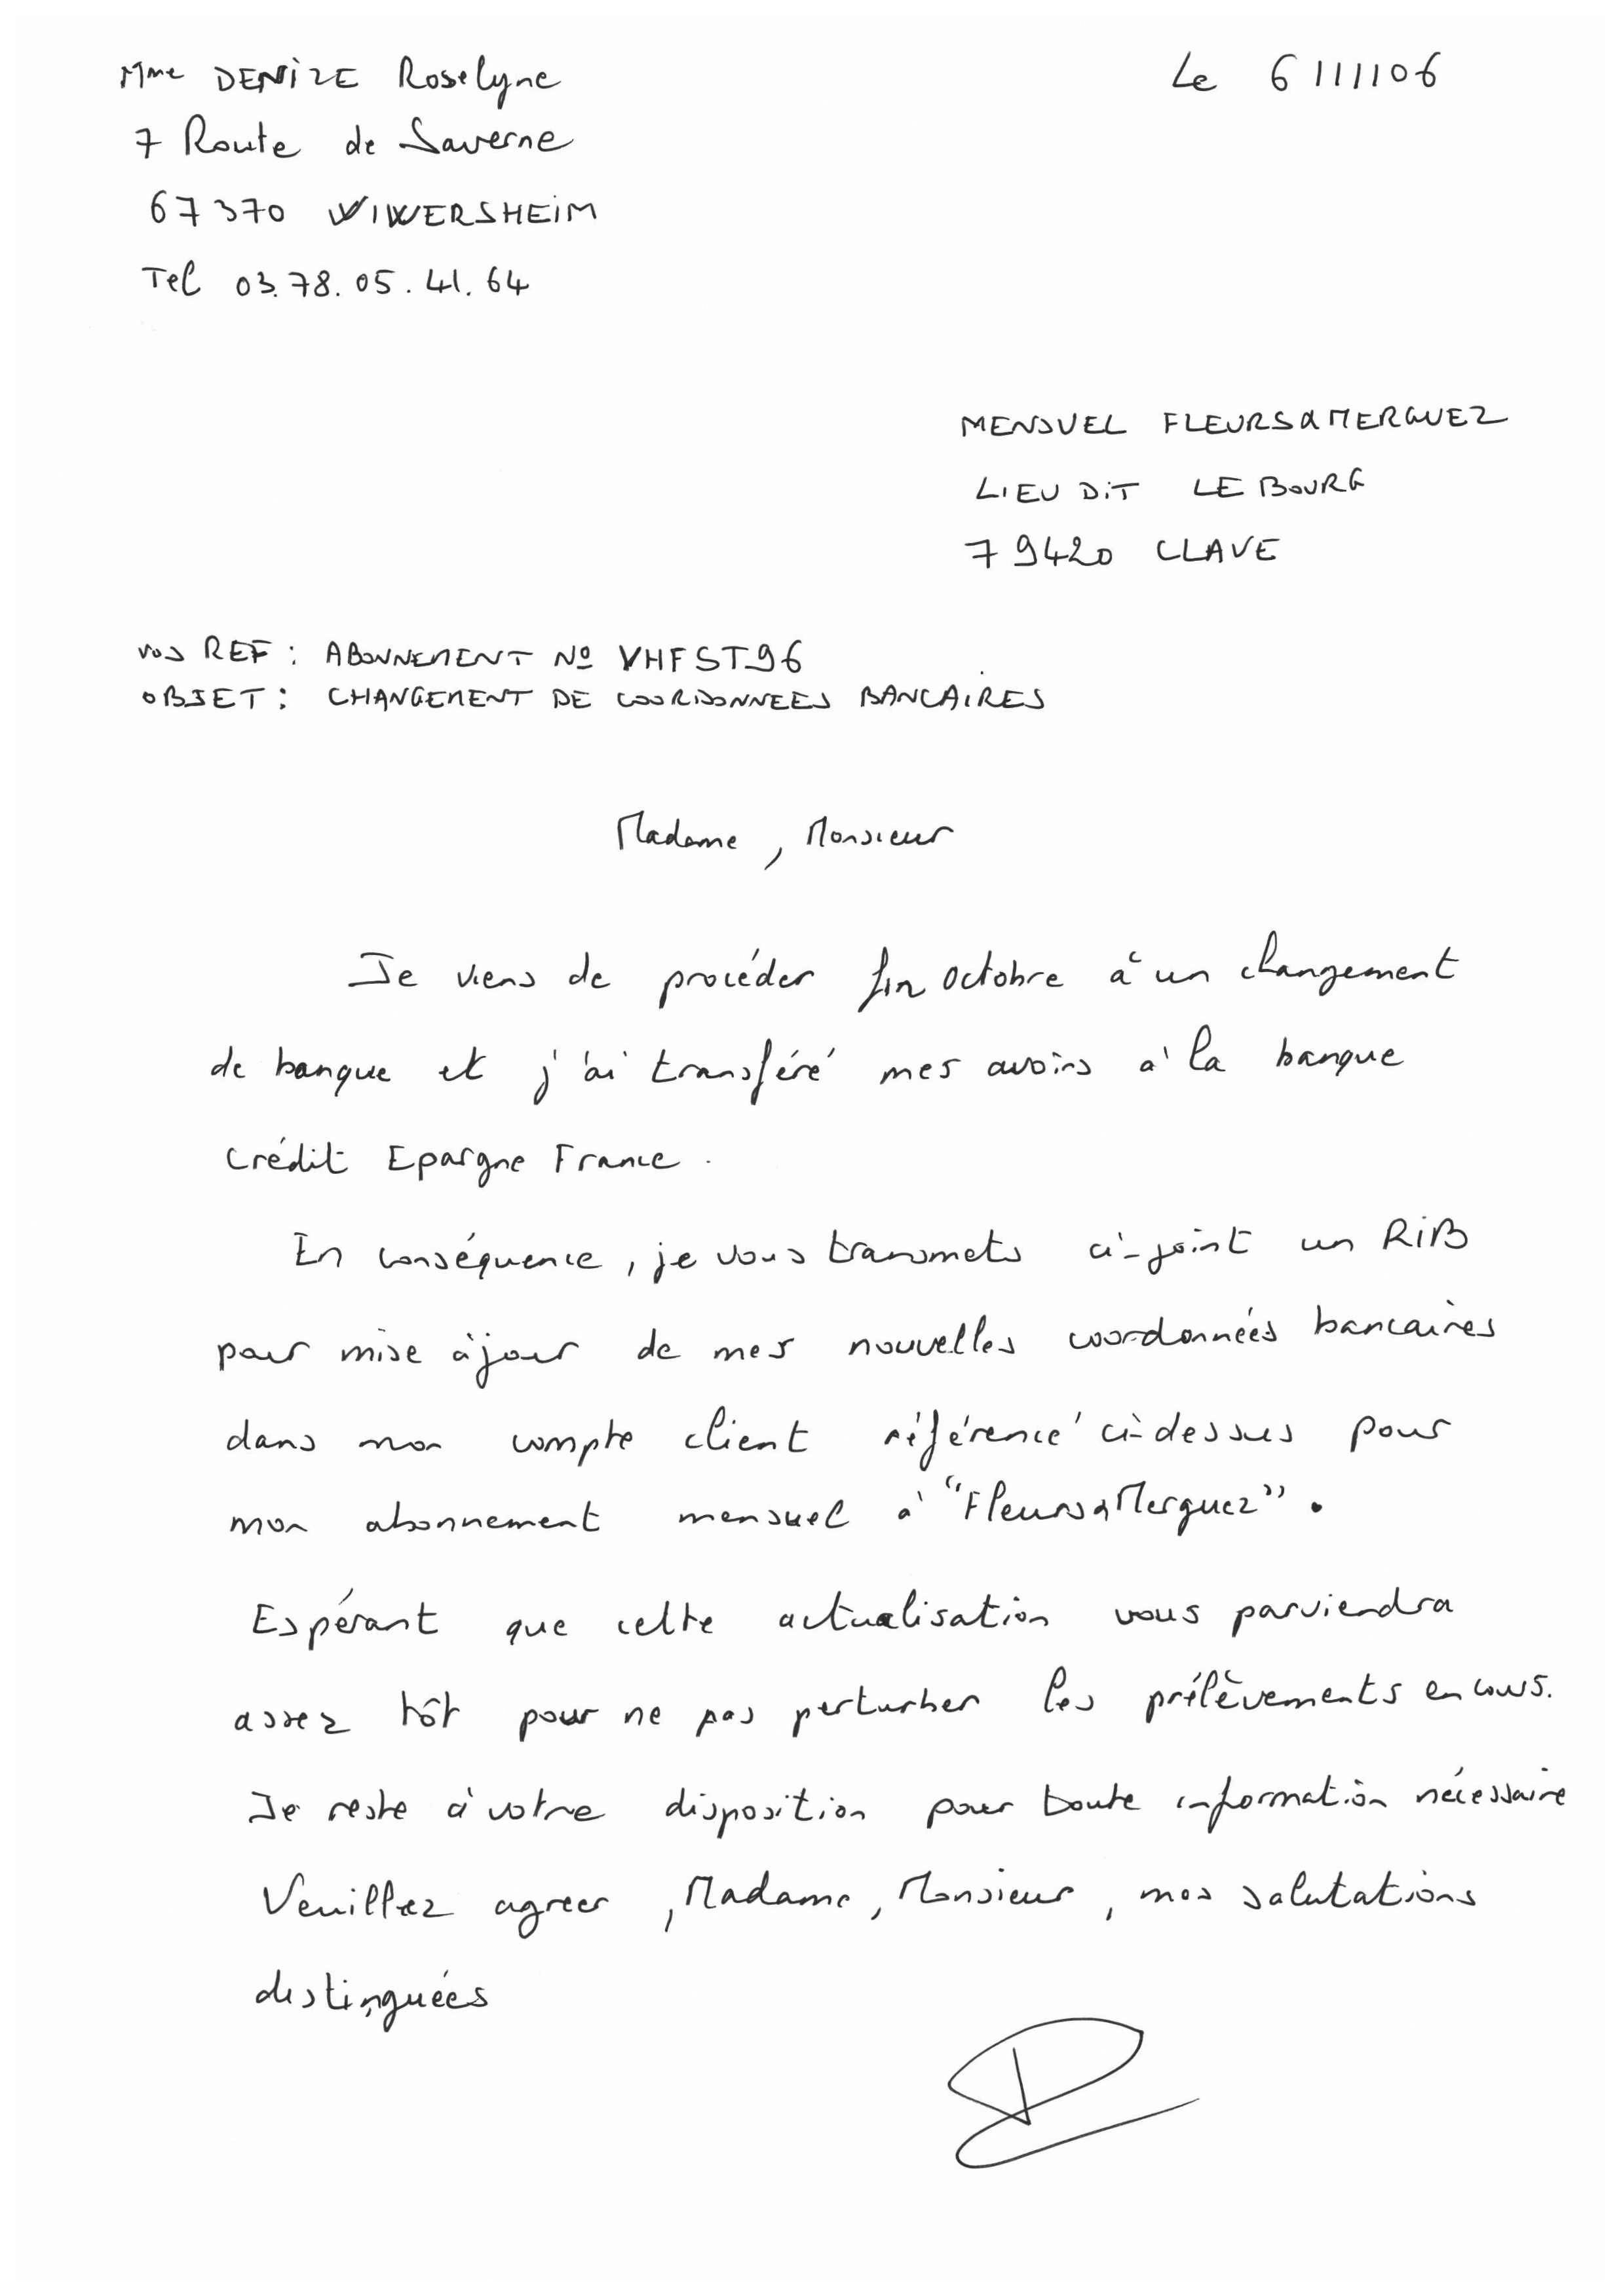 Mme DENIZE Roselyne
Le 6/11/06
7 Route de Saverne
67370 WIWERSHEIM
Tel 03.78.05.41.64
MENSUEL FLEURS&MERGUEZ
LIEU DIT LE BOURG
79420 CLAVE
VOS REF : ABONNEMENT Nº VHFST96
OBJET : CHANGEMENT DE COORDONNEES BANCAIRES
Madame, Monsieur
Je viens de procéder fin Octobre à un changement
de banque et j'ai transféré mes avoirs à la banque
Crédit Epargne France.
En conséquence, je vous transmets ci-joint un RiB
pour mise à jour de mes nouvelles coordonnées bancaires
dans mon compte client référencé ci-dessus pour
mon abonnement mensuel à "Fleurs&Merguez".
Espérant que cette actualisation vous parviendra
assez tôt pour ne pas perturber les prélèvements en cours.
Je reste à votre disposition pour toute information nécessaire
Veuillez agreer, Madame, Monsieur, mes salutations
distinguées